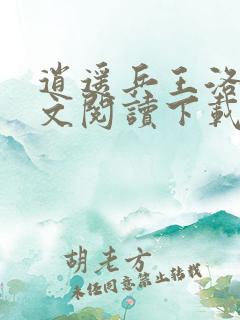 逍遥兵王洛
文閱讀下載
胡老方
未经同意禁止转载